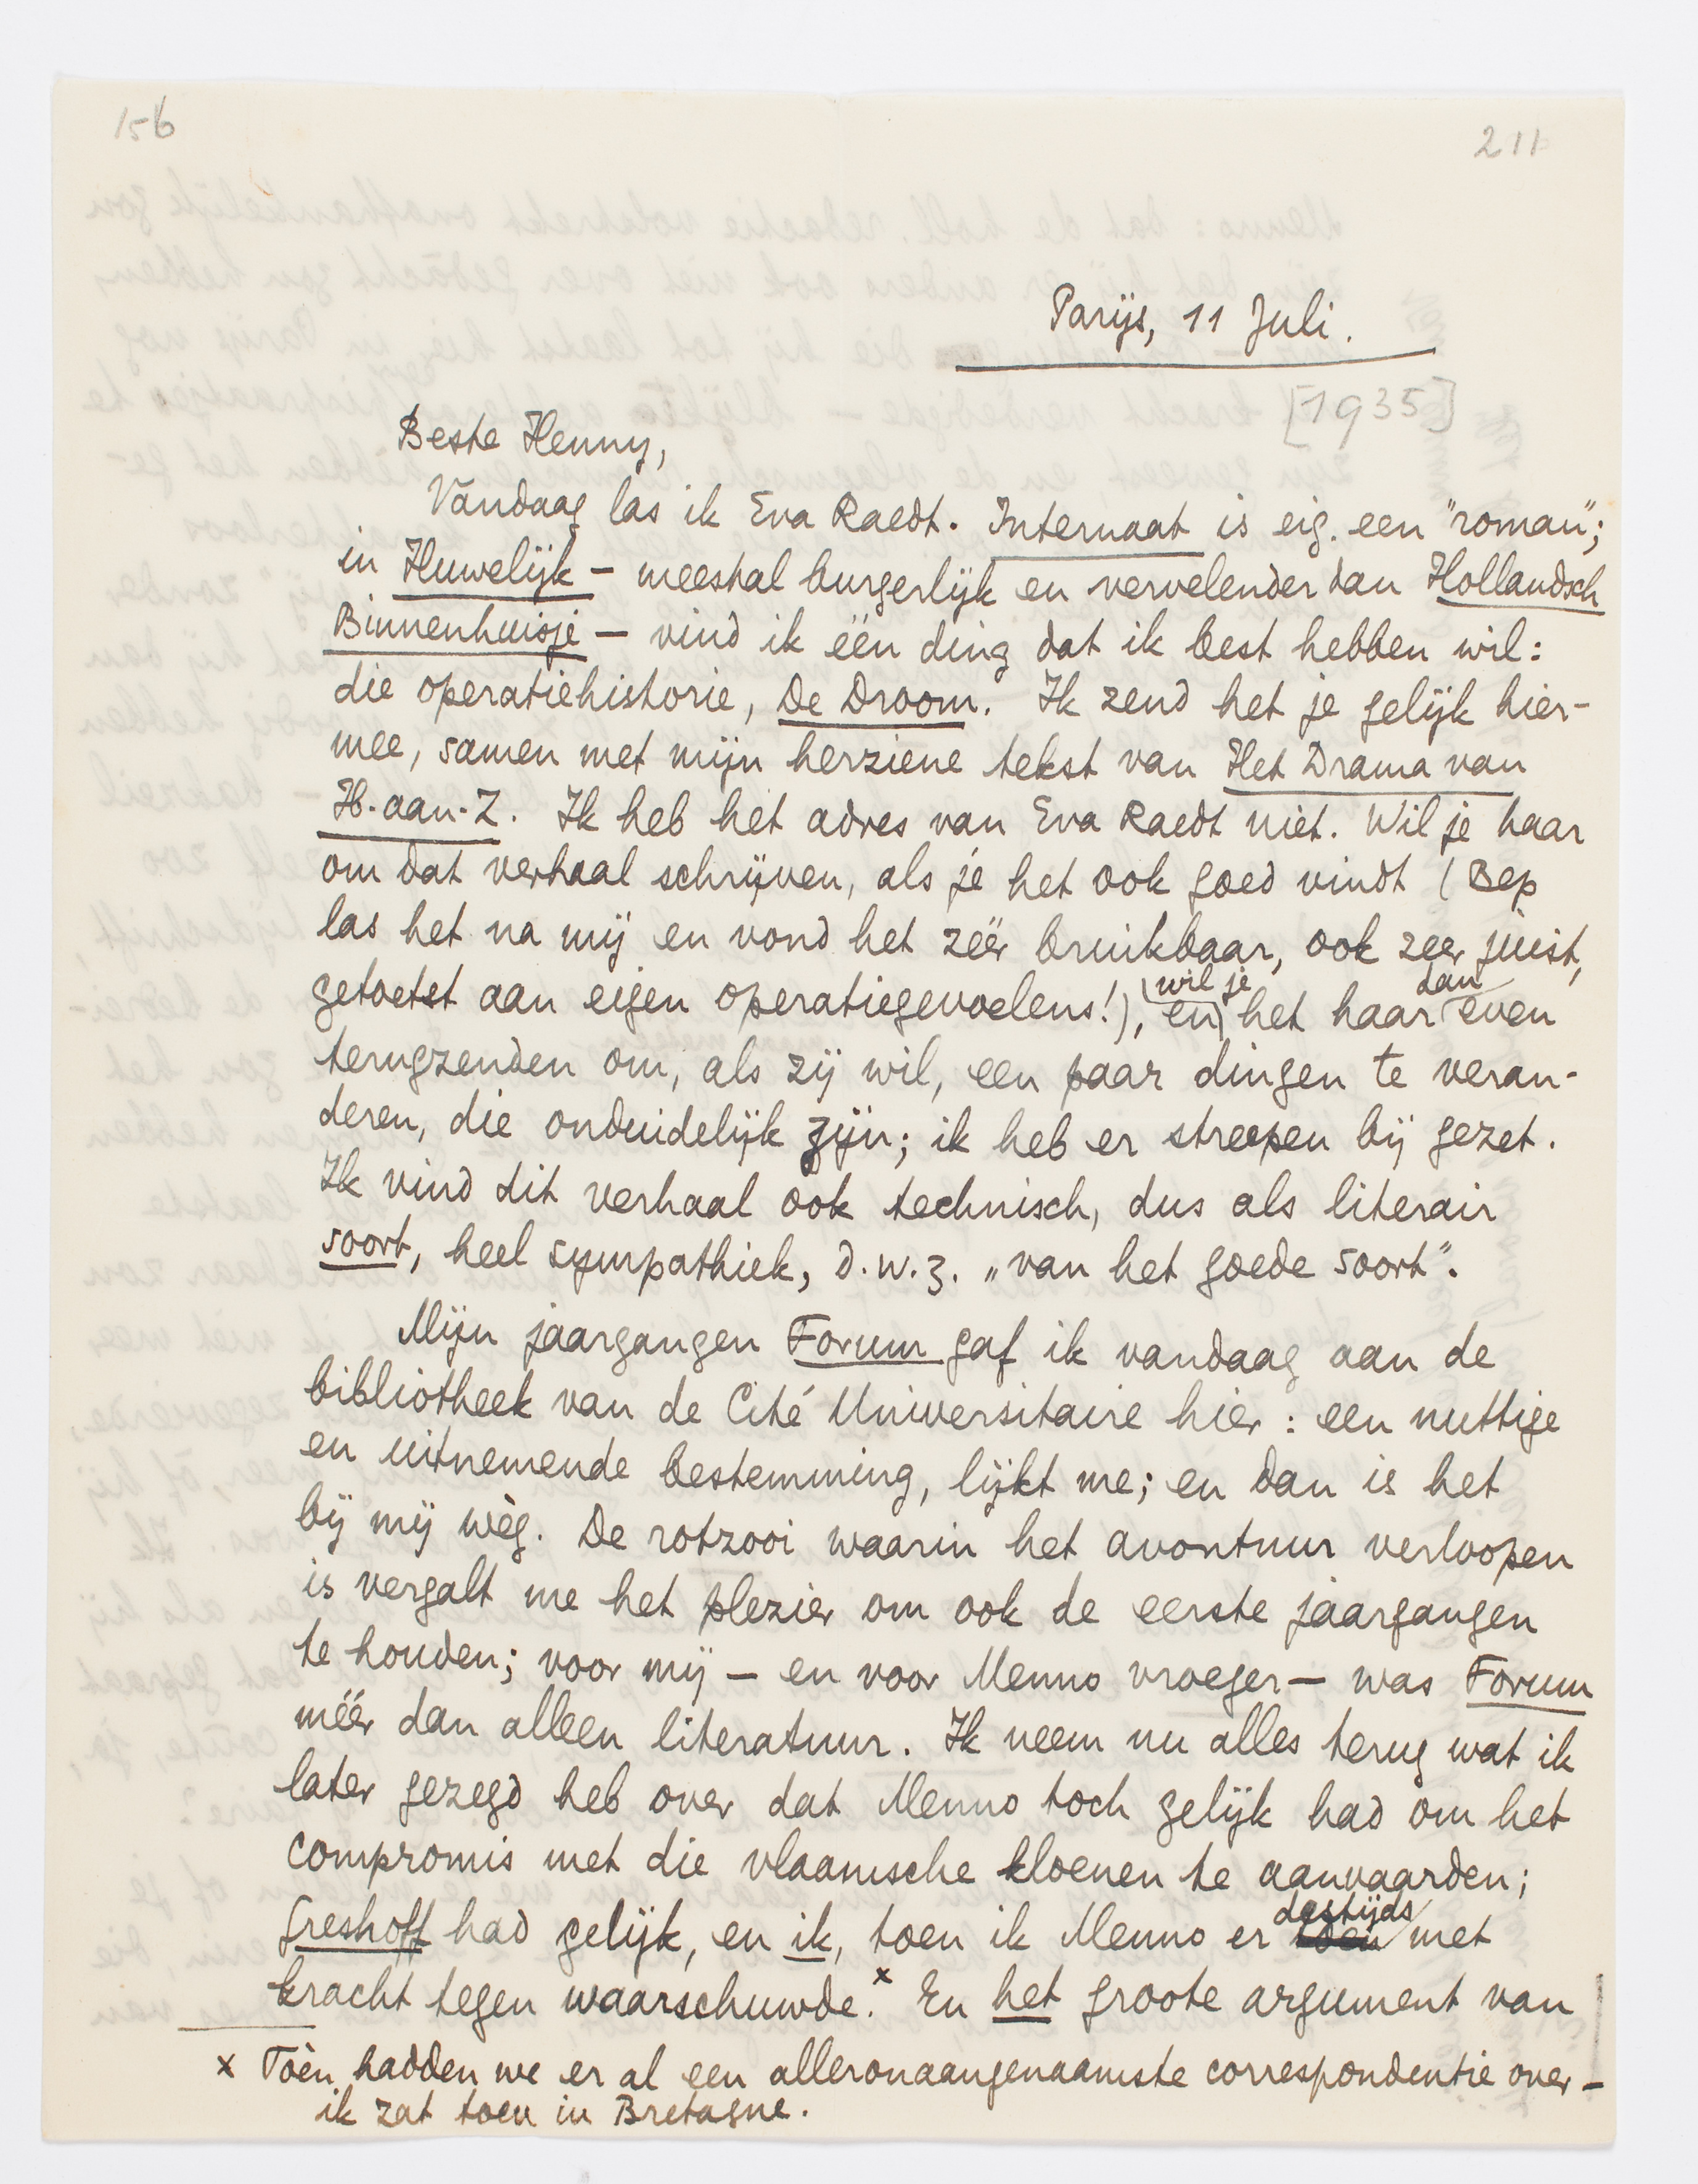 156
211
Parijs, 11 Juli.
[1935]
Beste Henny,
Vandaag las ik Eva Raedt. Internaat is eig. een "roman";
in Huwelijk – meestal burgerlijk en vervelender dan Hollandsch
Binnenhuisje – vind ik één ding dat ik best hebben wil:
die operatiehistorie, De Droom. Ik zend het je gelijk hier-
mee, samen met mijn herziene tekst van Het Drama van
H.-aan-Z. Ik heb het adres van Eva Raedt niet. Wil je haar
om dat verhaal schrijven, als je het ook goed vindt (Bep
las het na mij en vond het zéér bruikbaar, ook zeer juist,
getoetst aan eigen operatiegevoelens!), en wil je het haar dan even
terugzenden om, als zij wil, een paar dingen te veran-
deren, die onduidelijk zijn; ik heb er streepen bij gezet.
Ik vind dit verhaal ook technisch, dus als literair
soort, heel sympathiek, d.w.z. „van het goede soort".
Mijn jaargangen Forum gaf ik vandaag aan de
bibliotheek van de Cité Universitaire hier: een nuttige
en uitnemende bestemming, lijkt me; en dan is het
bij mij wèg. De rotzooi waarin het avontuur verloopen
is vergalt me het plezier om ook de eerste jaargangen
te houden; voor mij – en voor Menno vroeger – was Forum
méér dan alleen literatuur. Ik neem nu alles terug wat ik
later gezegd heb over dat Menno toch gelijk had om het
compromis met die vlaamsche kloenen te aanvaarden;
Greshoff had gelijk, en ik, toen ik Menno er toen destijds met
kracht tegen waarschuwde.x En het groote argument van
x Toèn hadden we er al een alleronaangenaamste correspondentie over –
ik zat toen in Bretagne.